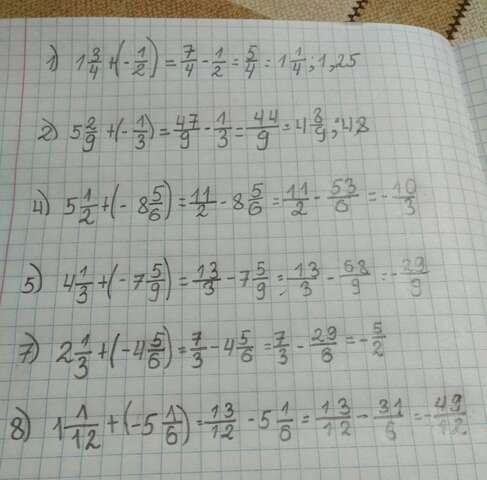 1) 1 3/4 + (- 1/2) = 7/4 - 1/2 = 5/4 = 1 1/4; 1,25
2) 5 2/9 + (- 1/3) = 47/9 - 1/3 = 44/9 = 4 8/9; 4,8
4) 5 1/2 + (- 8 5/6) = 11/2 - 8 5/6 = 11/2 - 53/6 = - 10/3
5) 4 1/3 + (- 7 5/9) = 13/3 - 7 5/9 = 13/3 - 68/9 = - 29/9
7) 2 1/3 + (- 4 5/6) = 7/3 - 4 5/6 = 7/3 - 29/6 = - 5/2
8) 1 1/12 + (- 5 1/6) = 13/12 - 5 1/6 = 13/12 - 31/6 = - 49/12